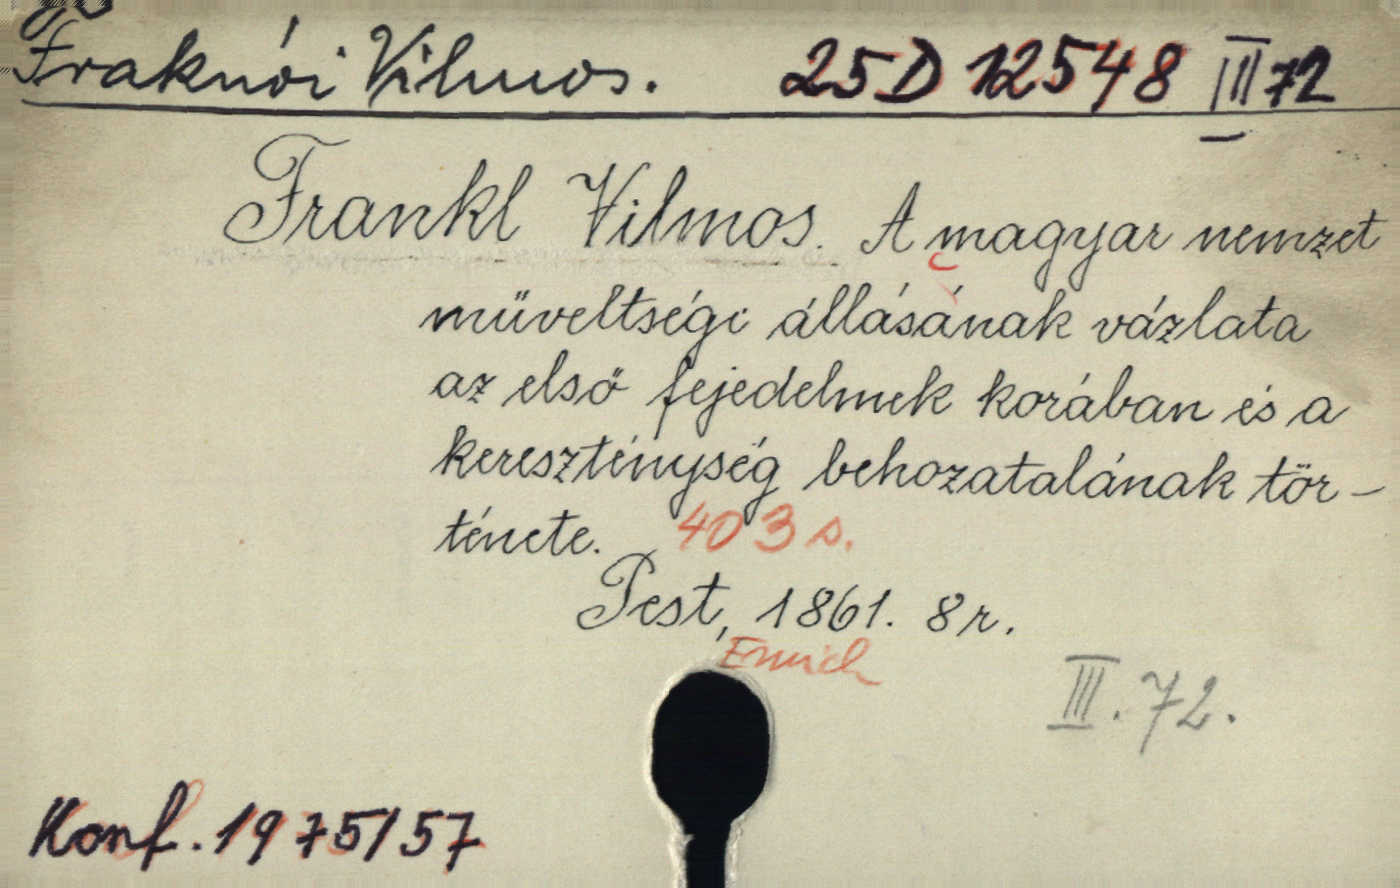 Fraknói Vilmos. 25D 12548 III 72
Frankl Vilmos. A magyar nemzet
műveltségi állásának vázlata
az első fejedelmek korában és a
kereszténység behozatalának tör-
ténete. 403 s.
Pest, 1861. 8r.
Emich
III. 72.
Konf. 1975/57